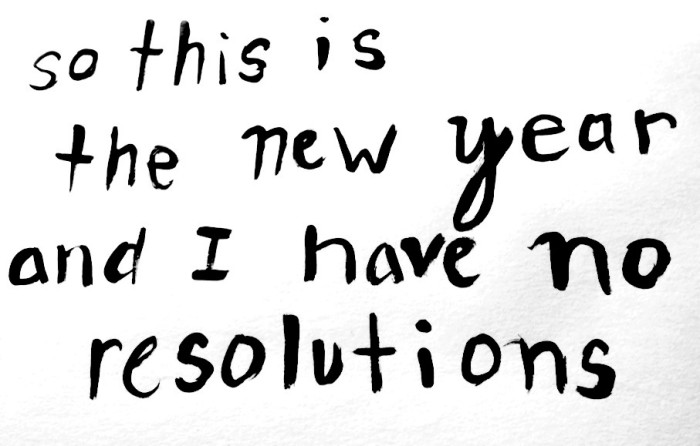 so this is
the new year
and I have no
resolutions